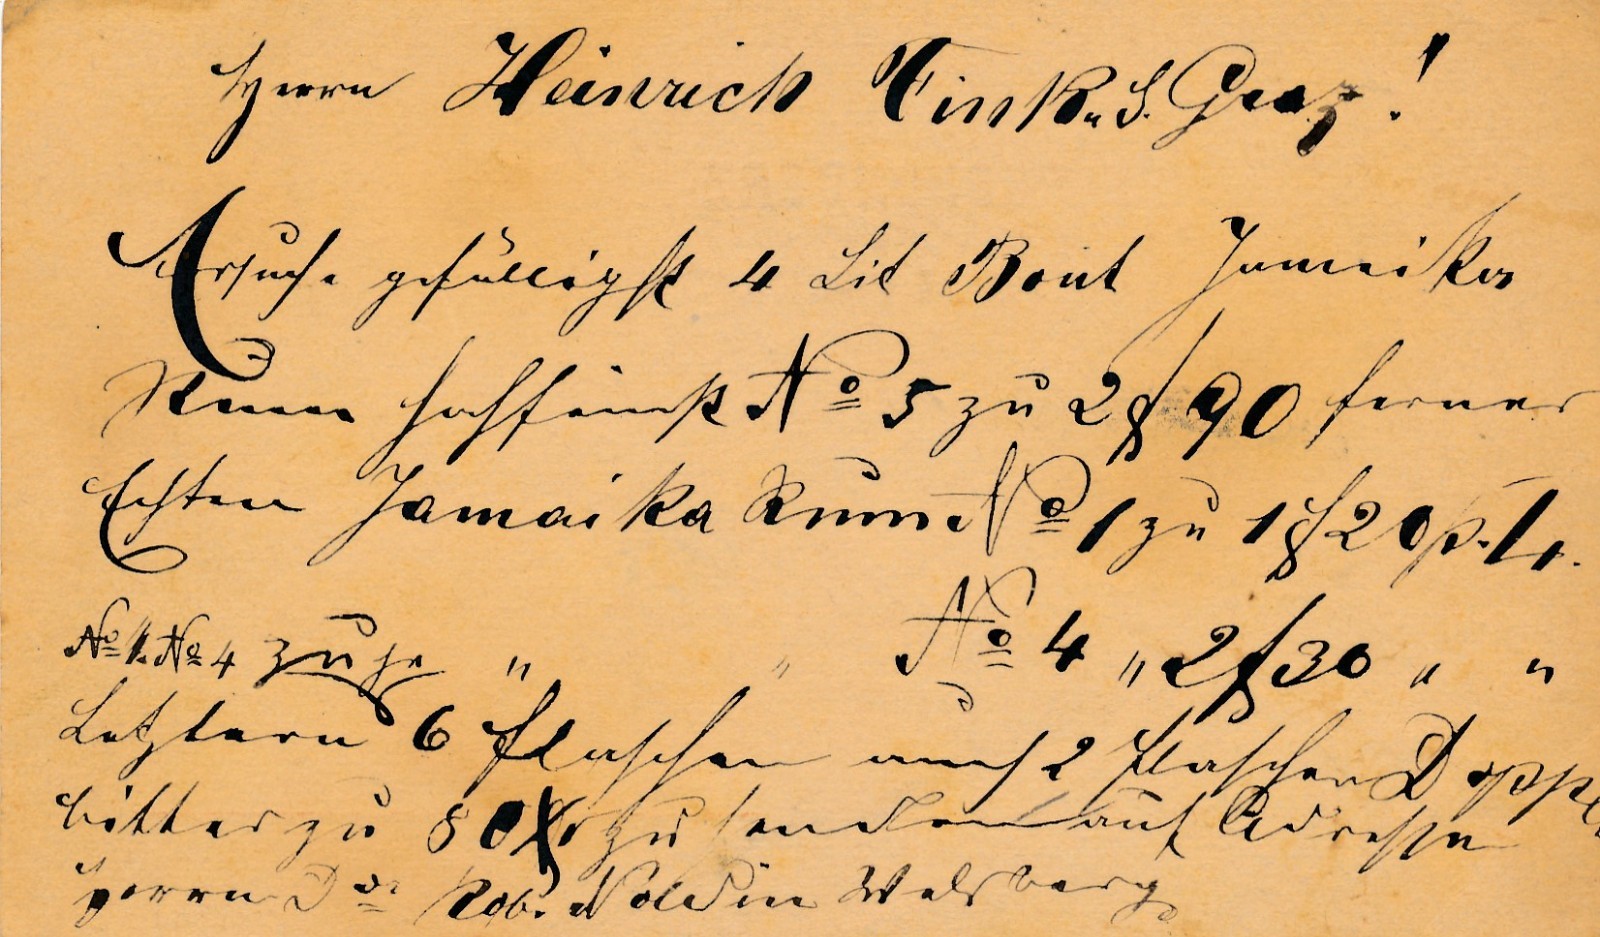 Herrn Heinrich Fink u. S. Graz!
Ersuche gefälligst 4 Lit Bout Jameika
Rum hochfeinst No 5 zu 2f 90 ferner
Echten Jamaika Rum No 1 zu 1f 20 p. L.
" " No 4 " 2f 30 " "
No 1. No 4 zu je
Letztern 6 Flaschen auch 2 Flaschen Doppel
bitter zu 80 zu senden auf Adresse
Herrn Dr Rob. Noldin Welsberg